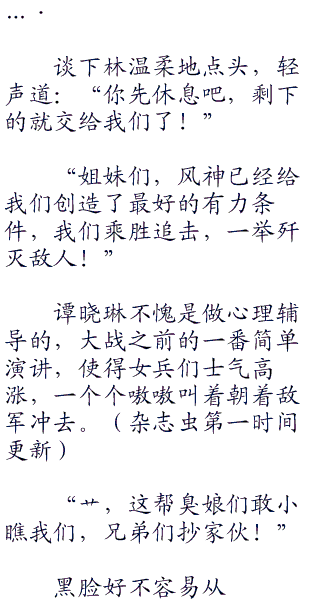 … ·
谈下林温柔地点头，轻
声道：“你先休息吧，剩下
的就交给我们了！”
“姐妹们，风神已经给
我们创造了最好的有力条
件，我们乘胜追去，一举歼
灭敌人！”
谭晓琳不愧是做心理辅
导的，大战之前的一番简单
演讲，使得女兵们士气高
涨，一个个嗷嗷叫着朝着敌
军冲去。（杂志虫第一时间
更新）
“艹，这帮臭娘们敢小
瞧我们，兄弟们抄家伙！”
黑脸好不容易从